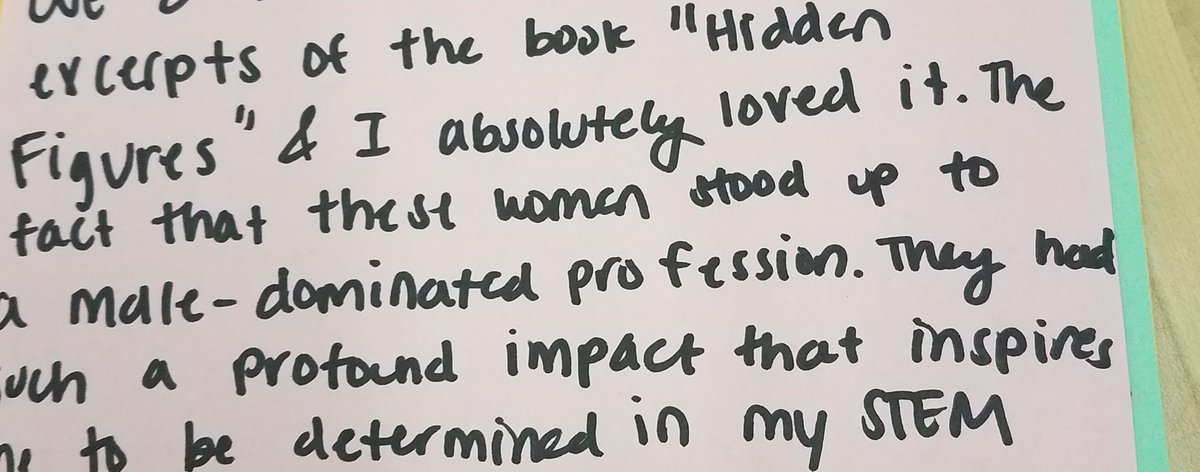 excerpts of the book "Hidden
Figures" & I absolutely loved it. The
fact that these women stood up to
a male-dominated profession. They had
such a profound impact that inspires
me to be determined in my STEM